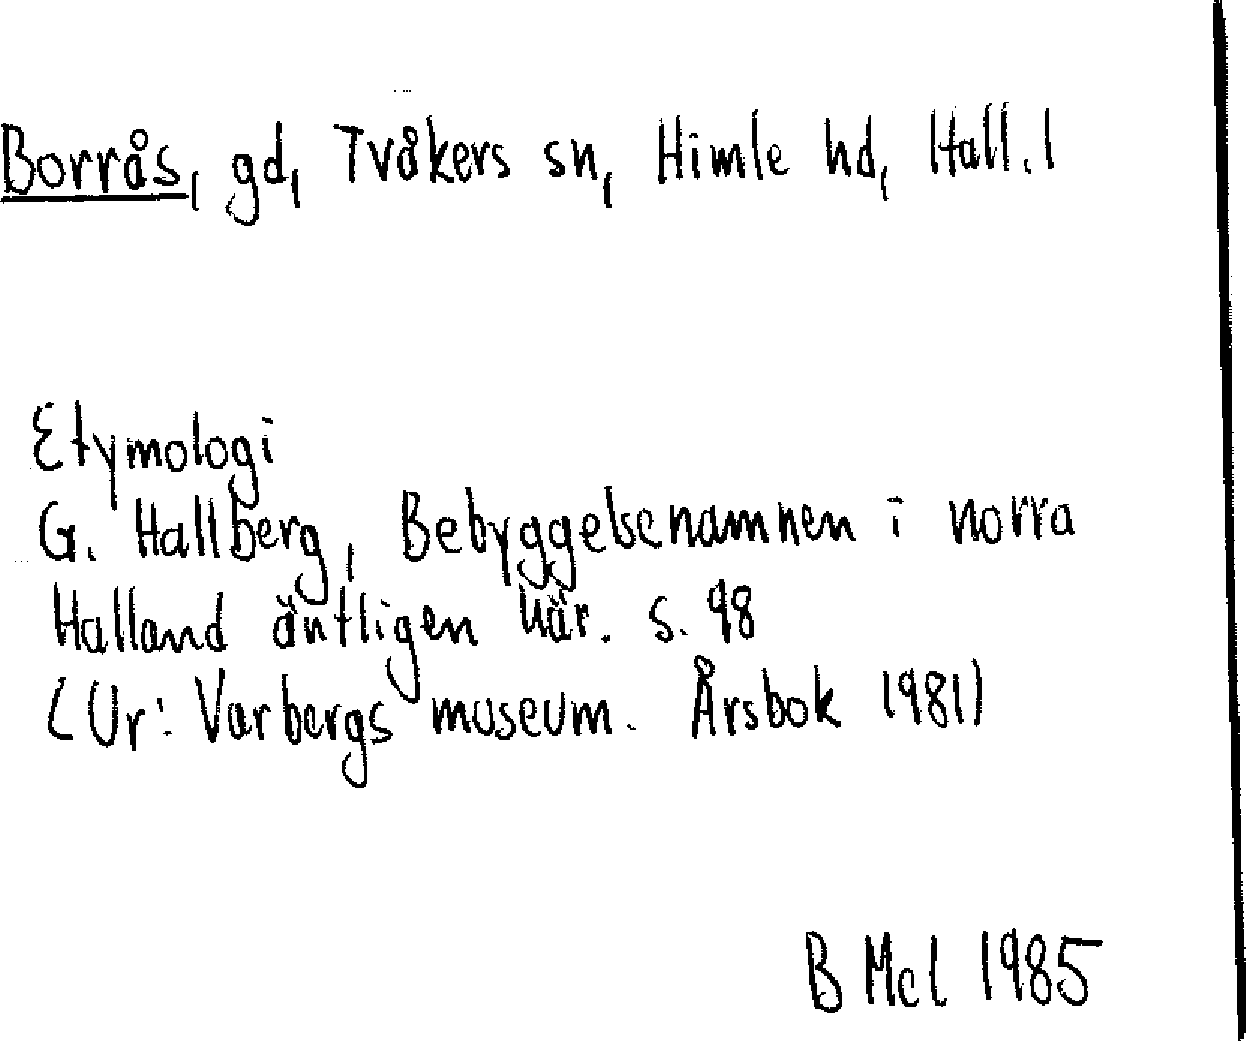 Borrås, gd, Tvåkers sn, Himle hd, Hall. l
Etymologi
G. Hallberg, Bebyggelsenamnen i norra
Halland äntligen här. s. 98
(Ur: Varbergs museum. Årsbok 1981)
B Mcl 1985